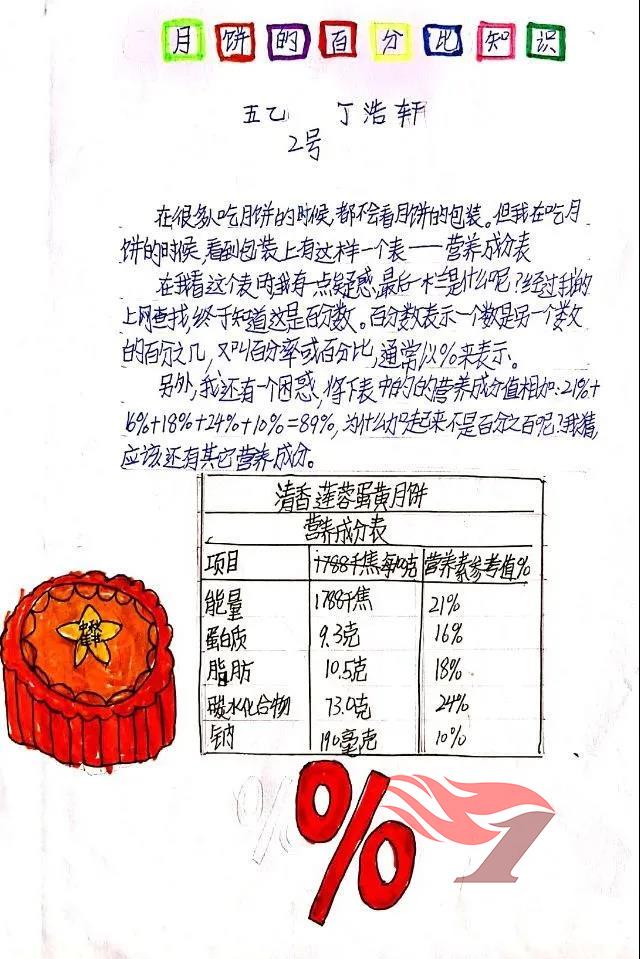 月饼的百分比知识
五乙 丁浩轩
2号
在很多人吃月饼的时候,都不会看月饼的包装。但我在吃月
饼的时候,看到包装上有这样一个表——营养成分表
在我看这个表时,我有一点疑惑,最后一栏是什么呢?经过我的
上网查找,终于知道这是百分数。百分数表示一个数是另一个数
的百分之几,又叫百分率或百分比,通常以%来表示。
另外,我还有一个困惑,将下表中的的营养成分值相加:21%+
16%+18%+24%+10%=89%,为什么加起来不是百分之百呢?我猜,
应该还有其它营养成分。
清香莲蓉蛋黄月饼
营养成分表
项目 每100克 营养素参考值%
能量 1788千焦 21%
蛋白质 9.3克 16%
脂肪 10.5克 18%
碳水化合物 73.0克 24%
钠 190毫克 10%
%
1